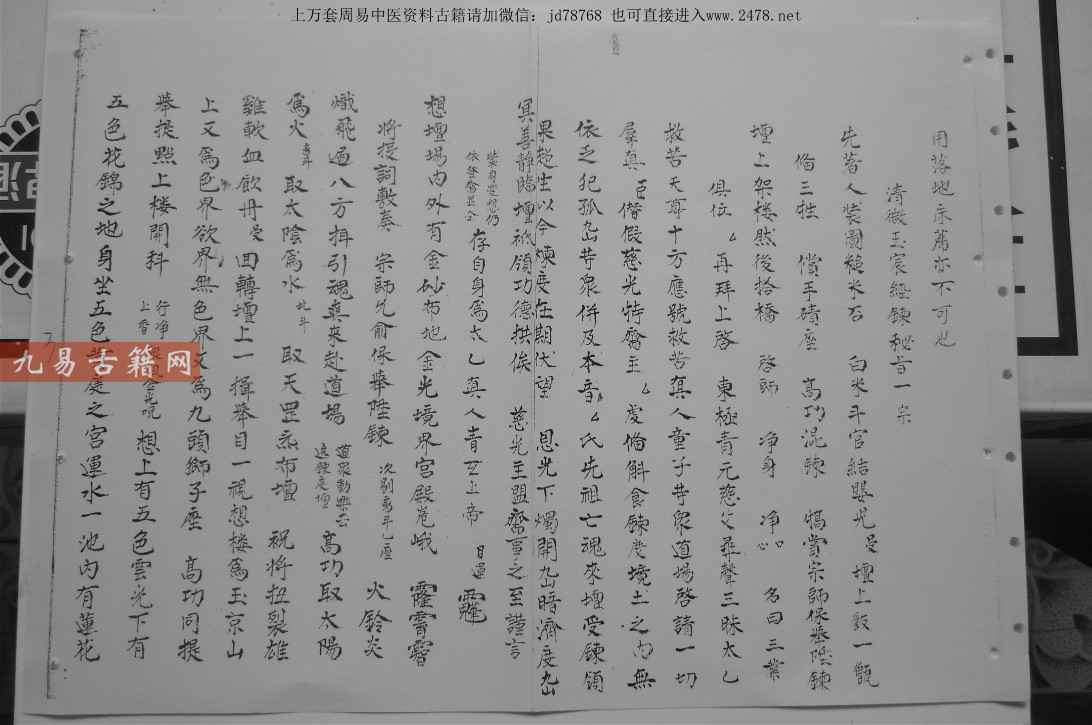 上万套周易中医资料古籍请加微信：jd78768 也可直接进入www.2478.net
用落地床荐亦不可也
清微玉宸經鍊秘旨一宗
先着人裝圖 米石 白米斗官結 光 壇上設一甑
俻三牲 償手 座 高功混鍊 犒賞宗師保舉陞鍊
壇上架楼然後拾橋 啓師 净身 净心 名曰三業
具位厶 再拜上啓 東極青元慈父尋聲三昧太乙
救苦天尊十方應號救苦真人童子等衆道場啓請一切
羣真 臣僭假慈光特齋主 厶 虔俻斛食鍊度境土之内無
依乏祀孤䰟等衆併及本音厶氏先祖亡魂來壇受鍊領
果超生以今煉度在期伏望 恩光下燭開 暗濟度
冥善静臨壇祗領功德拱俟 慈光主盟齋事之至謹言
存自身為太乙真人青玄上帝 目運
想壇場内外有金砂布地金光境界宮殿嵬峨
將投詞敷奏 宗師允俞保舉陞鍊 火鈴炎
熾飛遍八方揖引魂真来赴道場 高功取太陽
爲火 取太陰爲水 北斗 取天罡炁布壇 祝將扭裂雄
雞軟血飲丹 回轉壇上一揖舉目一視想楼爲玉京山
上又爲色界欲界無色界又爲九頭獅子座 高功同提
舉提點上楼開科 行净 上香 金光咒 想上有五色雲光下有
五色花錦之地身坐五色 之宮運水一池内有蓮花
九易古籍网